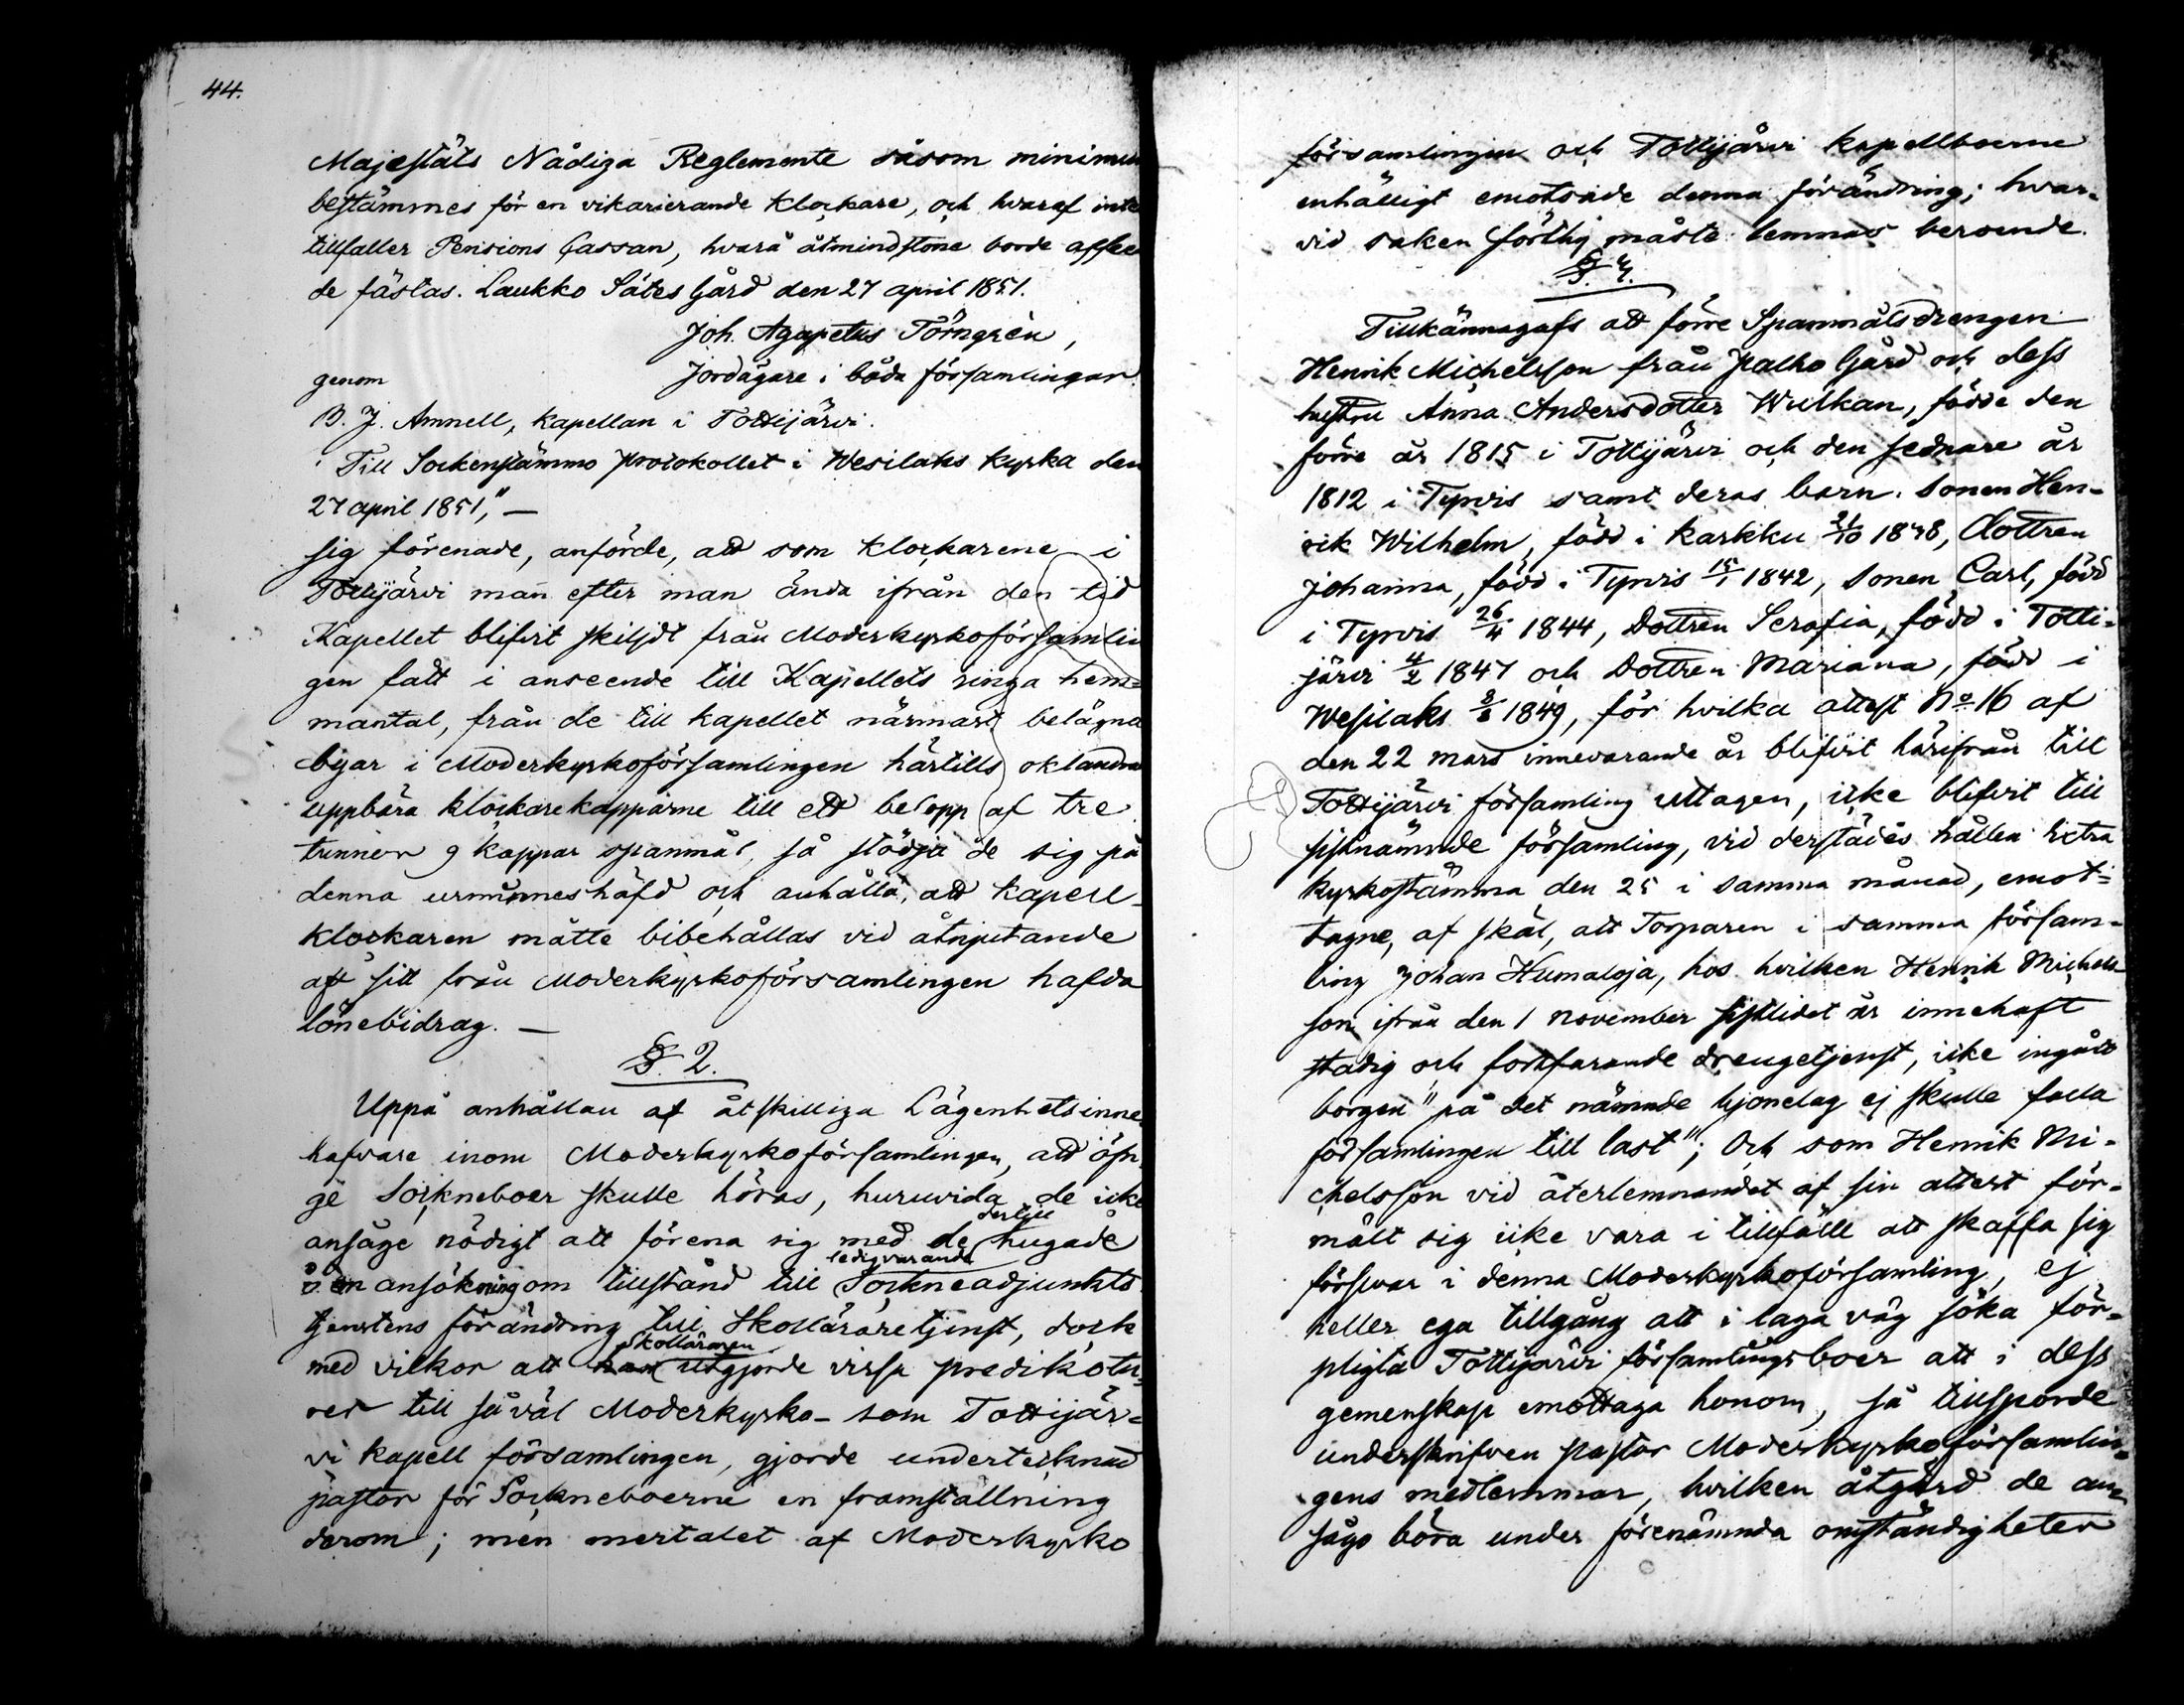 44.
Majestäts Nådiga Reglemente såsom minimum
bestämmes för en vikarierande klockare, och hvaraf inte
tillfaller Pensions Cassan, hvarå åtmindstone borde afseen
de fästas. Laukko Sätes Gård den 27 april 1851.
Joh. Agapetus Törngrèn,
genom Jordägare i båda församlingar.
B. J. Amnell, kapellan i Tottijärvi.
Till Sockenstämmo protokollet i Wesilaks kyrka den
27 april 1851," —
sig förenade, anförde, att som klockarene i
Tottijärvi man efter man ända ifrån den tid
Kapellet blifvit skiljdt från Moderkyrkoförsamlin
gen fått i anseende till Kapellets ringa hem-
mantal, från de till kapellet närmast belägna
byar i Moderkyrkoförsamlingen härtills oklandra
uppbära klockarekapparne till ett belopp af tre
tunnor 9 kappar spanmål, så stödja de sig på
denna urminneshäfd och anhålla, att kapell-
klockaren måtte bibehållas vid åtnjutande
af sitt från Moderkyrkoförsamlingen hafda
lönebidrag. —
§. 2.
Uppå anhållan af åtskilliga Lägenhetsinne
hafvare inom Moderkyrkoförsamlingen, att öfri
ge Sockneboer skulle höras, huruvida de icke
dertill
ansåge nödigt att förena sig med de hugade
ledigvarande
i en ansökning om tillstånd till Sockneadjunkts
tjenstens förändring till Skollärare tjenst, dock
Skolläraren
med vilkor att utgjorde vissa predikotu-
rer till så väl Moderkyrko- som Tottijär-
vi kapell församlingen, gjorde undertecknad
pastor för Sockneboerne en framställning
derom; men mertalet af Moderkyrko
församlingen och Tottijärvi kapellboerne
enhälligt emotsade denna förändring; hvar-
vid saken förthy måste lemnas beroende.
§. 3.
Tillkännagafs att förre Spannmålsdrengen
Henrik Michelsson från Palho Gård och dess
hustru Anna Andersdotter Wulkan, födde den
förre år 1815 i Tottijärvi och den sednare år
1812 i Tyrvis samt deras barn. Sonen Hen-
rik Wilhelm, född i Karkku 21/10 1838, Dottren
Johanna, född i Tyrvis 15/1 1842, Sonen Carl, född
i Tyrvis 26/4 1844, Dottren Serafia, född i Totti-
järvi 4/2 1847 och Dottren Mariana, född i
Wesilaks 1849, för hvilka attest No 16 af
den 22 mars innevarande år blifvit härifrån till
Tottijärvi församling uttagen, icke blifvit till
sistnämnde församling, vid derstädes hållen Extra
kyrkostämma den 25 i samma månad, emot-
tagne, af skäl, att Torparen i samma försam-
ling Johan Humaloja, hos hvilken Henrik Michels
son ifrån den 1 november sistlidet år innehaft
stadig och fortfarande drengetjenst, icke ingått
borgen "på det nämnde hjonelag ej skulle falla
församlingen till last"; Och som Henrik Mi-
chelsson vid återlemnandet af sin attest för-
mält sig icke vara i tillfälle att skaffa sig
försvar i denna Moderkyrkoförsamling, ej
heller ega tillgång att i laga väg söka för-
pligta Tottijärvi församlingsboer att i dess
gemenskap emottaga honom, så tillsporde
underskrifven pastor Moderkyrkoförsamlin-
gens medlemmar, hvilken åtgärd de an-
sågo böra under förenämnda omständigheter